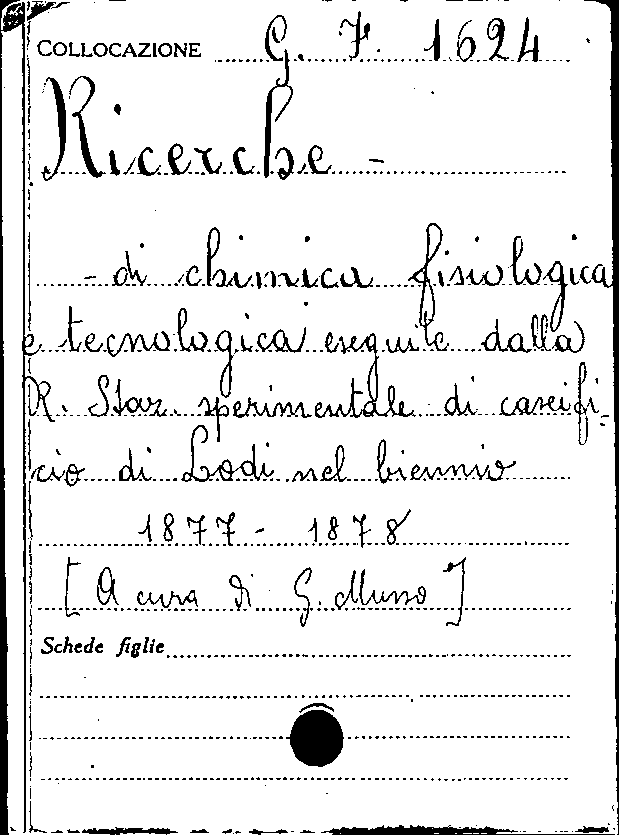 COLLOCAZIONE G. F. 1624
Ricerche -
- di chimica fisiologica
e tecnologica eseguite dalla
R. Staz. sperimentale di caseifi-
cio di Lodi nel biennio
1877 - 1878
[A cura di G. Musso]
Schede figlie